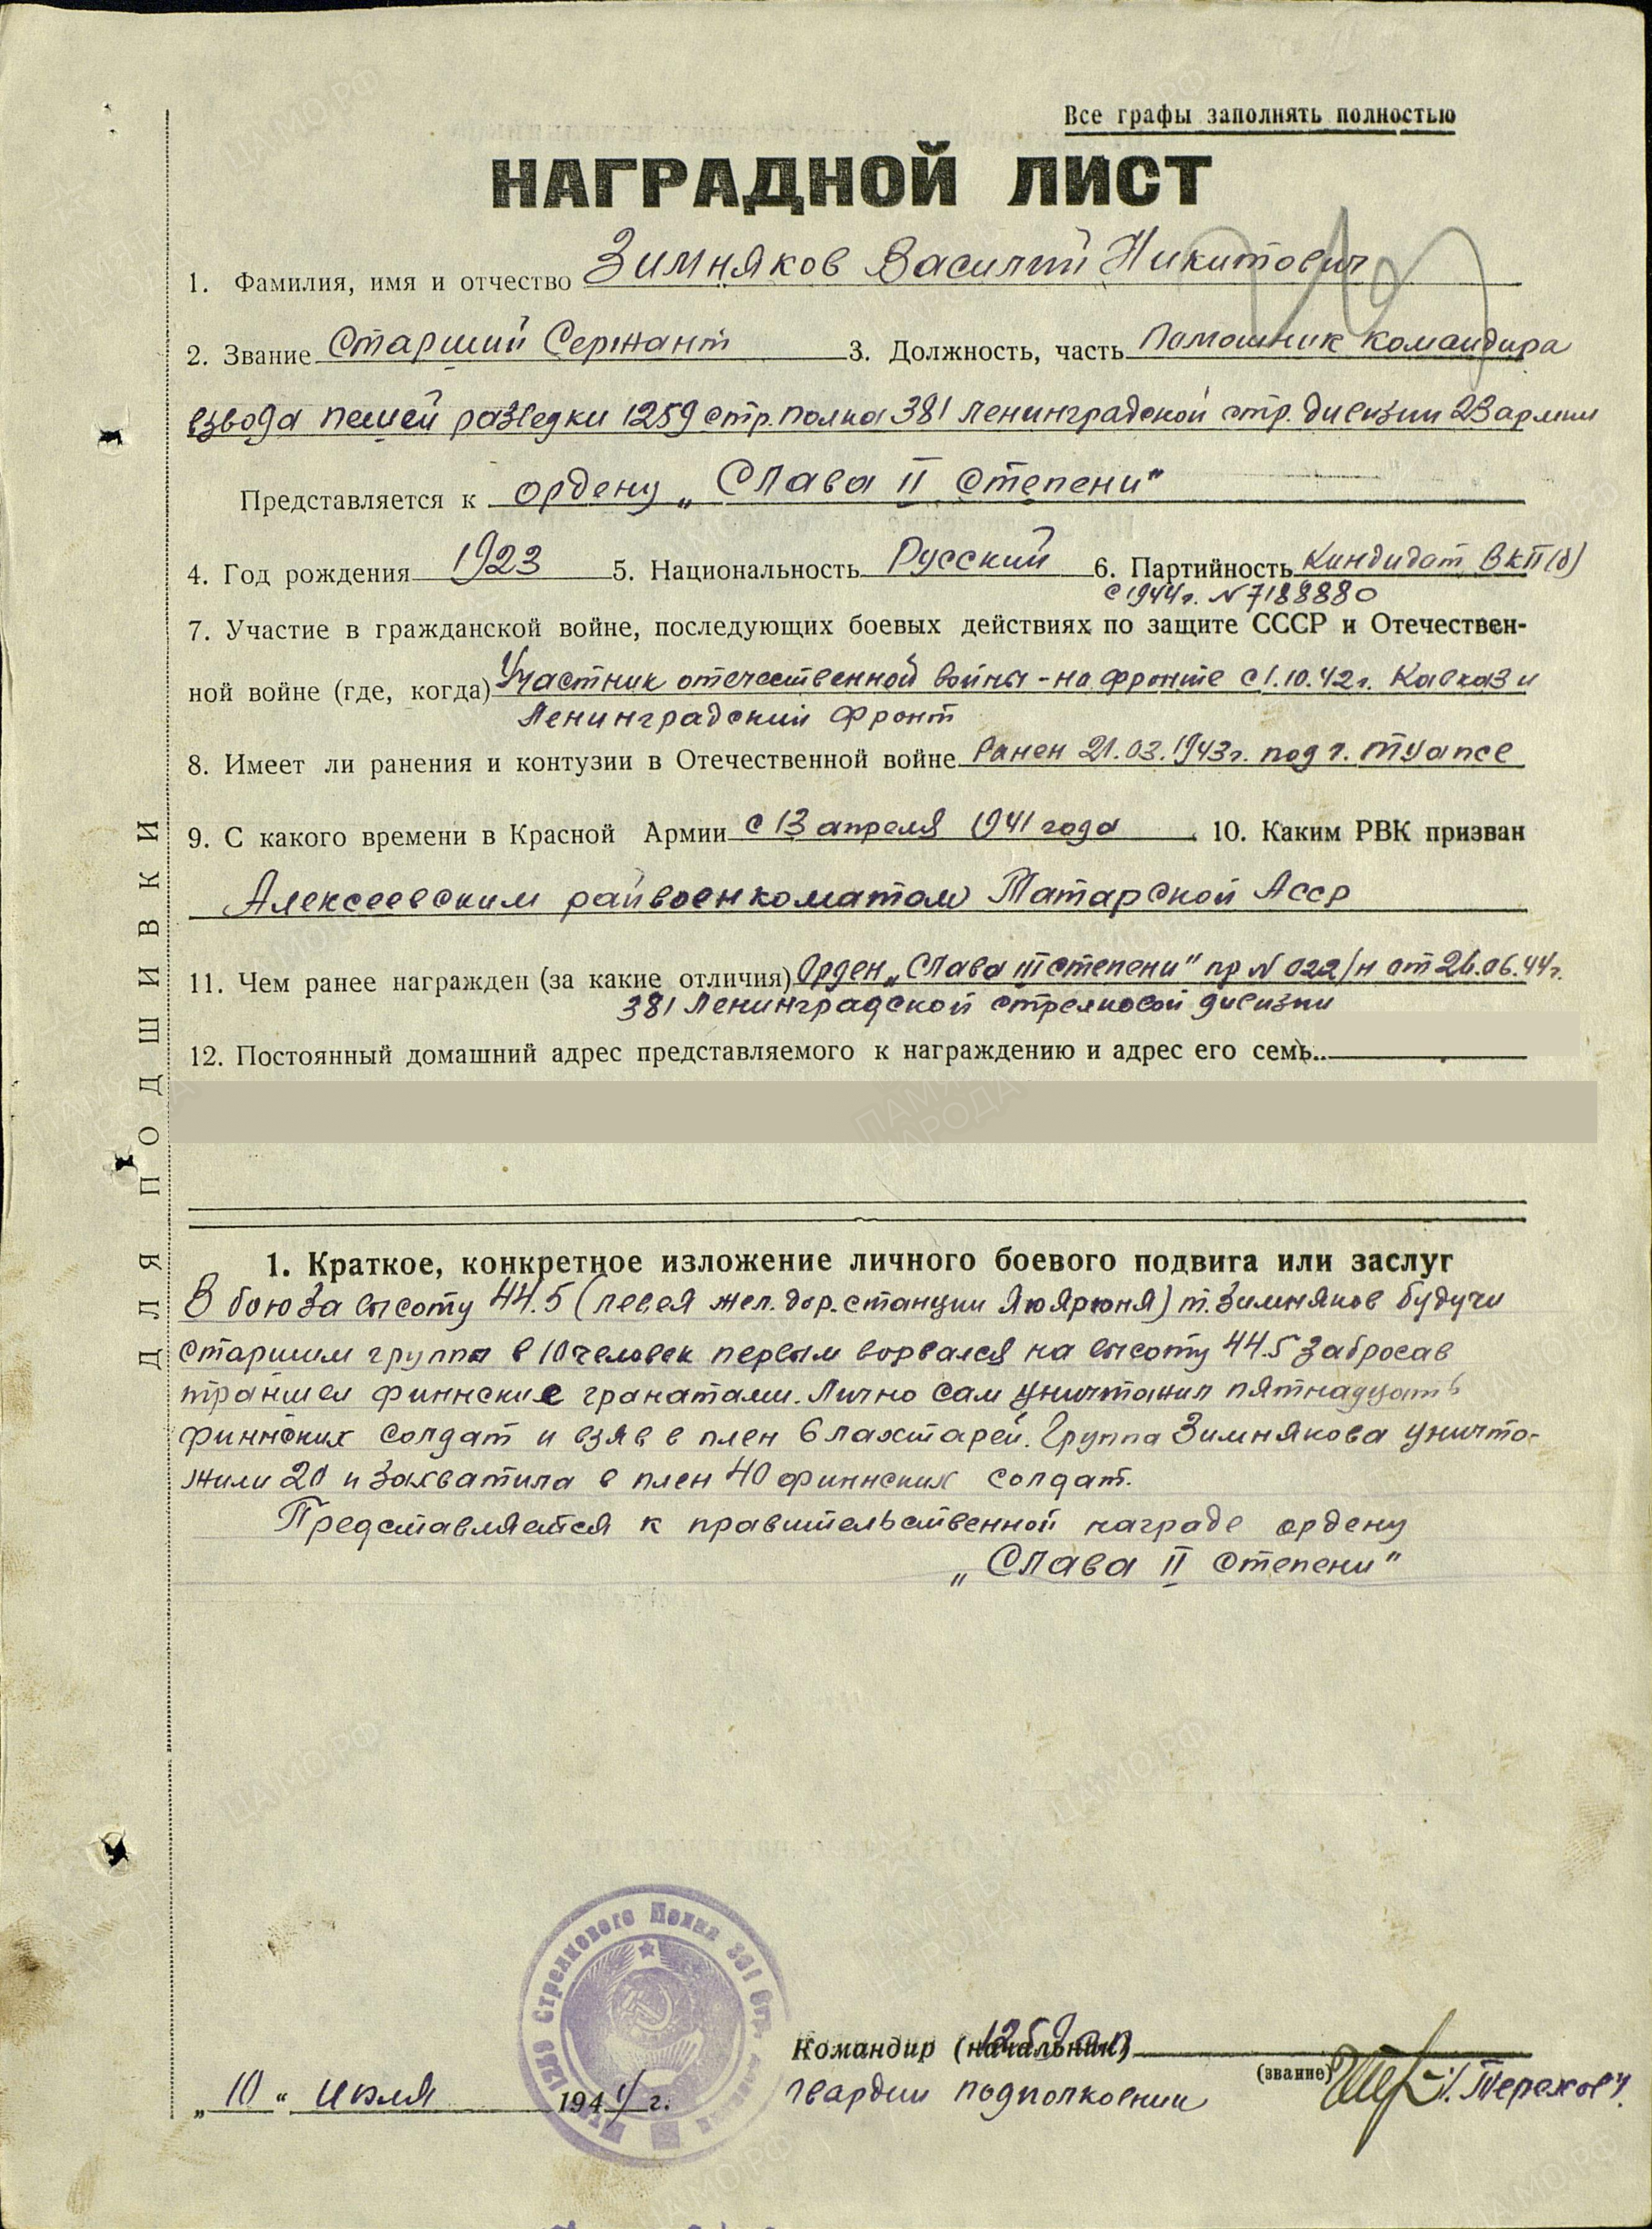 Все графы заполнять полностью
НАГРАДНОЙ ЛИСТ
1. Фамилия, имя и отчество Зимняков Василий Никитович
2. Звание Старший Сержант 3. Должность, часть Помошник командира
взвода пешей разведки 1259 стр. полка 381 Ленинградской стр. дивизии 23 армии
Представляется к ордену „Слава II степени"
4. Год рождения 1923 5. Национальность Русский 6. Партийность Кандидат ВКП(б)
с 1944г. N 7188880
7. Участие в гражданской войне, последующих боевых действиях по защите СССР и Отечествен-
ной войне (где, когда) Участник отечественной войны - на фронте с 1.10.42г. Кавказ и
Ленинградский фронт
8. Имеет ли ранения и контузии в Отечественной войне Ранен 21.03.1943г. под г. Туапсе
9. С какого времени в Красной Армии с 13 апреля 1941 года 10. Каким РВК призван
Алексеевским райвоенкоматом Татарской Асср
11. Чем ранее награжден (за какие отличия) Орден „Слава III степени" пр N 022/н от 26.06.44г.
381 Ленинградской стрелковой дивизии
12. Постоянный домашний адрес представляемого к награждению и адрес его семь..
ДЛЯ ПОДШИВКИ
1. Краткое, конкретное изложение личного боевого подвига или заслуг
В бою за высоту 44.5 (левея жел. дор. станции Яюярюня) т. Зимняков будучи
старшим группы в 10 человек первым ворвался на высоту 44.5 забросав
траншеи финские гранатами. Лично сам уничтожил пятнадцать
финских солдат и взяв в плен 6 лахтарей. Группа Зимнякова уничто-
жили 20 и захватила в плен 40 финских солдат.
Представляется к правительственной награде ордену
„Слава II степени"
1259 Стрелкового Полка 381 Стр.
Командир (начальник) 1259 сп
(звание)
гвардии подполковник /. Терехов/
„10" июля 1944 г.
ПАМЯТЬ НАРОДА
ЦАМО.РФ